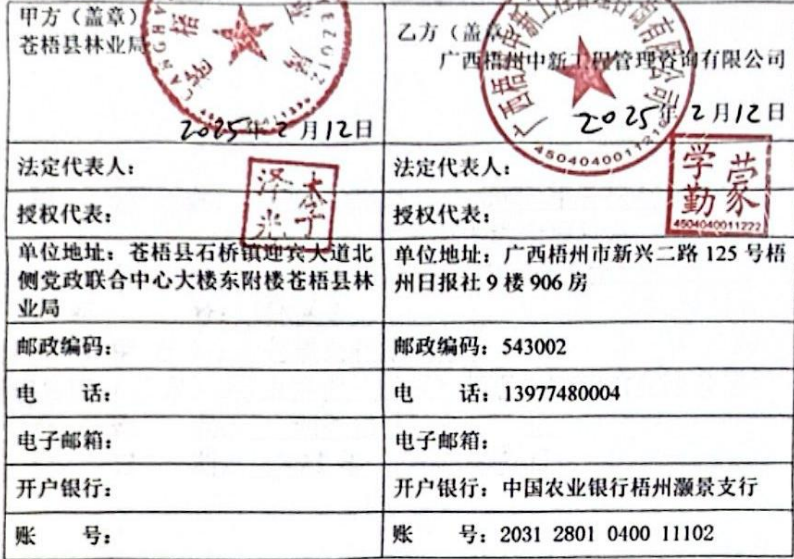 甲方（盖章）
苍梧县林业局
2025年2月12日
乙方（盖章
广西梧州中新工程管理咨询有限公司
2025年2月12日
法定代表人：
法定代表人：
授权代表：
授权代表：
学勤
蒙
4504040011222
单位地址：苍梧县石桥镇迎宾大道北
侧党政联合中心大楼东附楼苍梧县林
业局
单位地址：广西梧州市新兴二路 125 号梧
州日报社 9 楼 906 房
邮政编码：
邮政编码：543002
电 话：
电 话：13977480004
电子邮箱：
电子邮箱：
开户银行：
开户银行：中国农业银行梧州灏景支行
账 号：
账 号：2031 2801 0400 11102